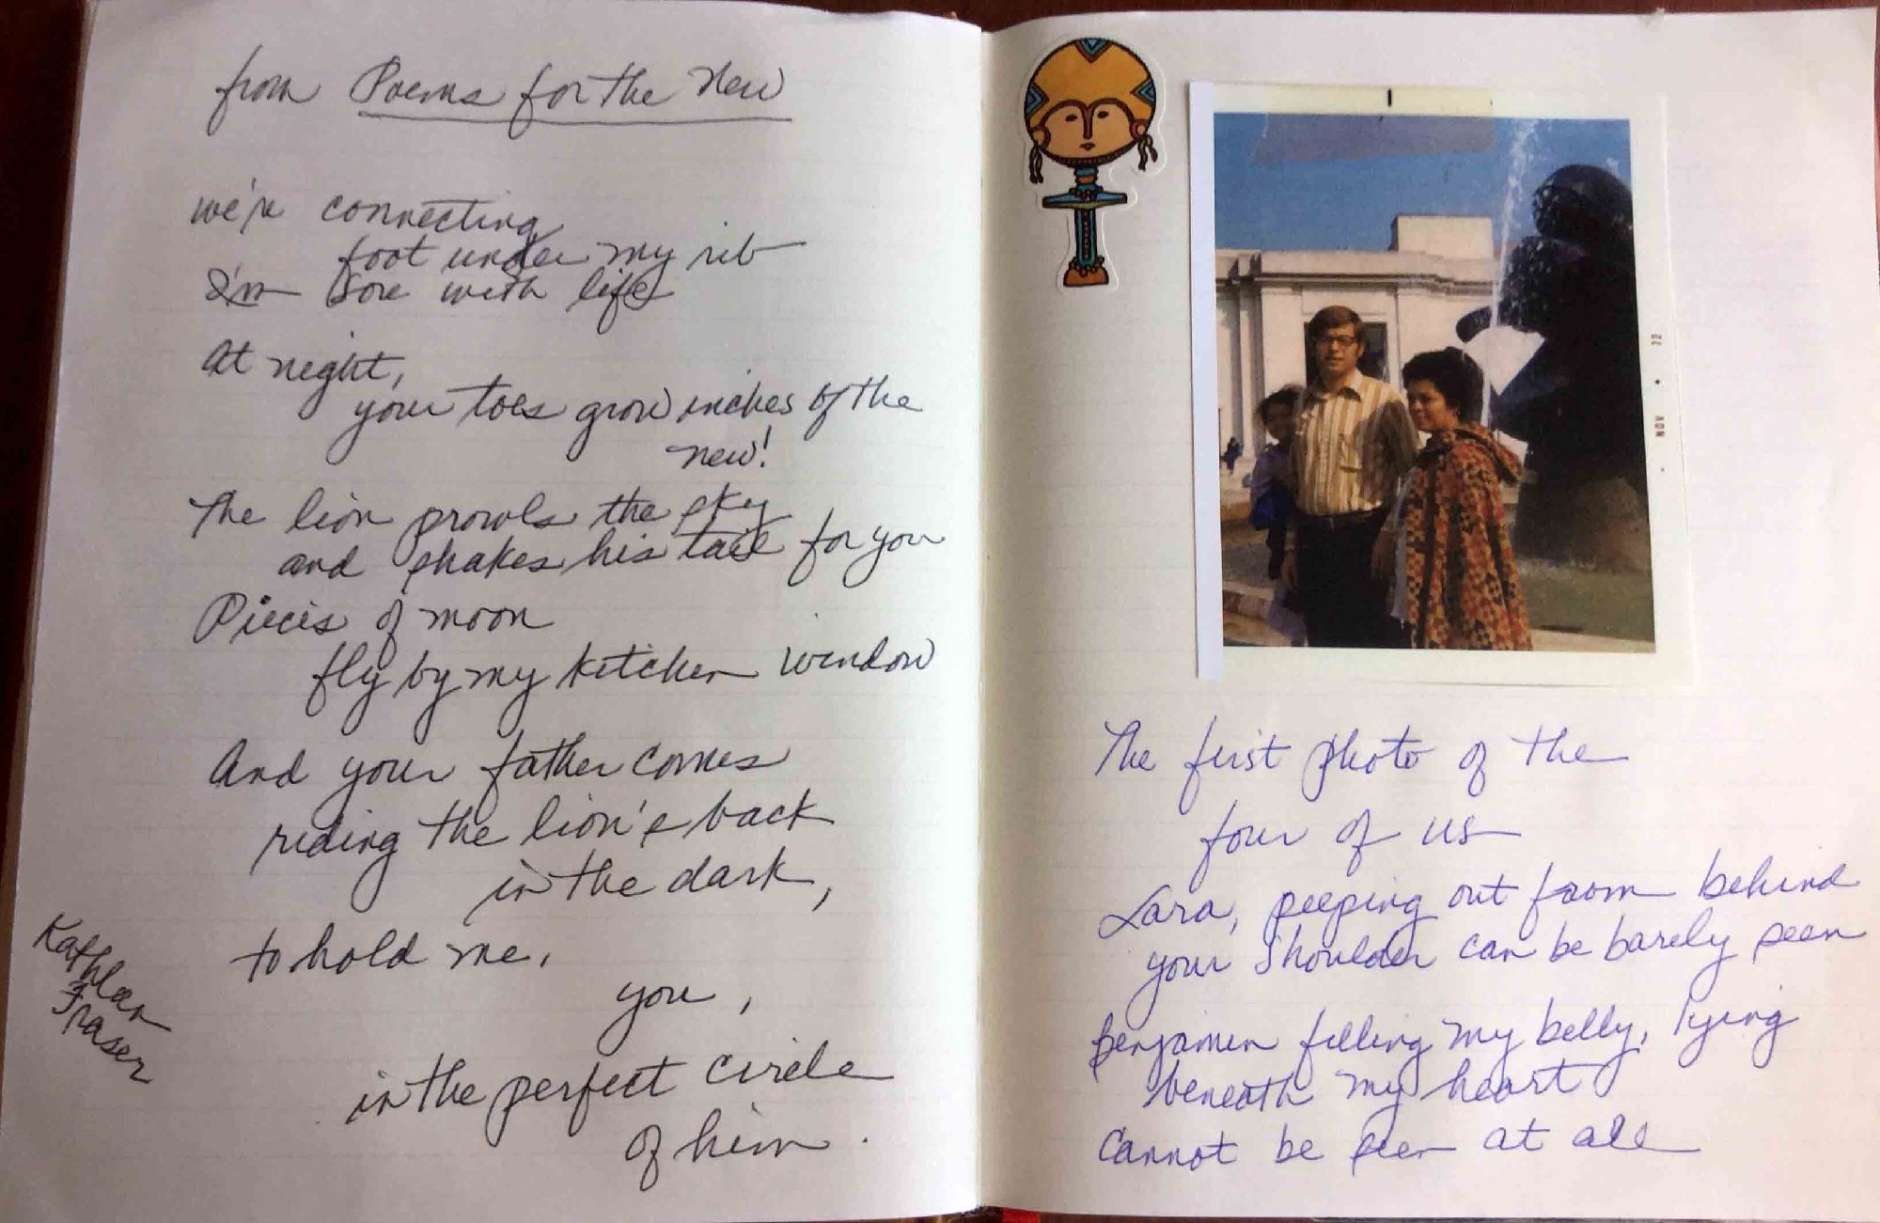 from Poems for the New
we're connecting
foot under my rib
I'm sore with life
At night,
your toes grow inches of the
new!
The lion prowls the sky
and shakes his tail for you
Pieces of moon
fly by my kitchen window
And your father comes
riding the lion's back
in the dark,
to hold me,
you,
in the perfect circle
of him.
Kathleen
Fraser
NOV 72
The first photo of the
four of us
Lara, peeping out from behind
your shoulder can be barely seen
Benjamin filling my belly, lying
beneath my heart
Cannot be seen at all